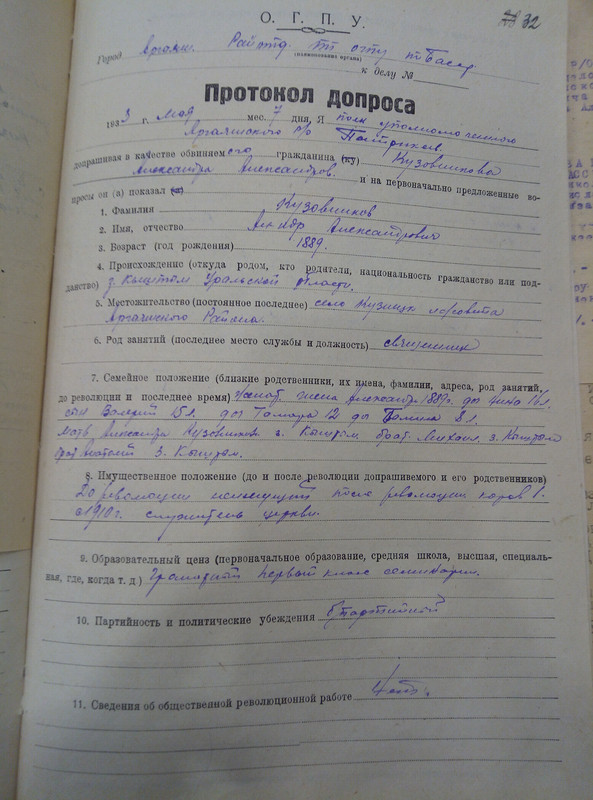 О. Г. П. У.
32
Город Аргаяш. Райотд.
(наименование органа)
к делу №
Протокол допроса
1933 г. мая мес. 7 дня. Я уполномоченного
Аргаяшского
допрашивая в качестве обвиняемого гражданина (ку) Кузовникова
Александра Александров. и на первоначально предложенные во-
просы он (а) показал (а)
1. Фамилия Кузовников
2. Имя, отчество Александрович
3. Возраст (год рождения) 1889.
4. Происхождение (откуда родом, кто родители, национальность гражданство или под-
данство) г. Кыштым Уральской области.
5. Местожительство (постоянное последнее) село Кузнецк
Аргаяшского Района.
6. Род занятий (последнее место службы и должность) священник
7. Семейное положение (близкие родственники, их имена, фамилии, адреса, род занятий,
до революции и последнее время) женат. жена Александра 1889г. дог Нина
сын Валерий 15 л. дог Тамара 12 дог 8 л.
мать Александра Кузовников г. Кыштым. брат Михаил г. Кыштым
брат Анатолий г. Кыштым.
8. Имущественное положение (до и после революции допрашивемого и его родственников)
До революции неимущий после революции коров 1.
с 1910 г. служитель церкви.
9. Образовательный ценз (первоначальное образование, средняя школа, высшая, специаль-
ная, где, когда т. д.) Грамотный первый класс семинарии.
10. Партийность и политические убеждения б/партийный
11. Сведения об общественной революционной работе Нет.